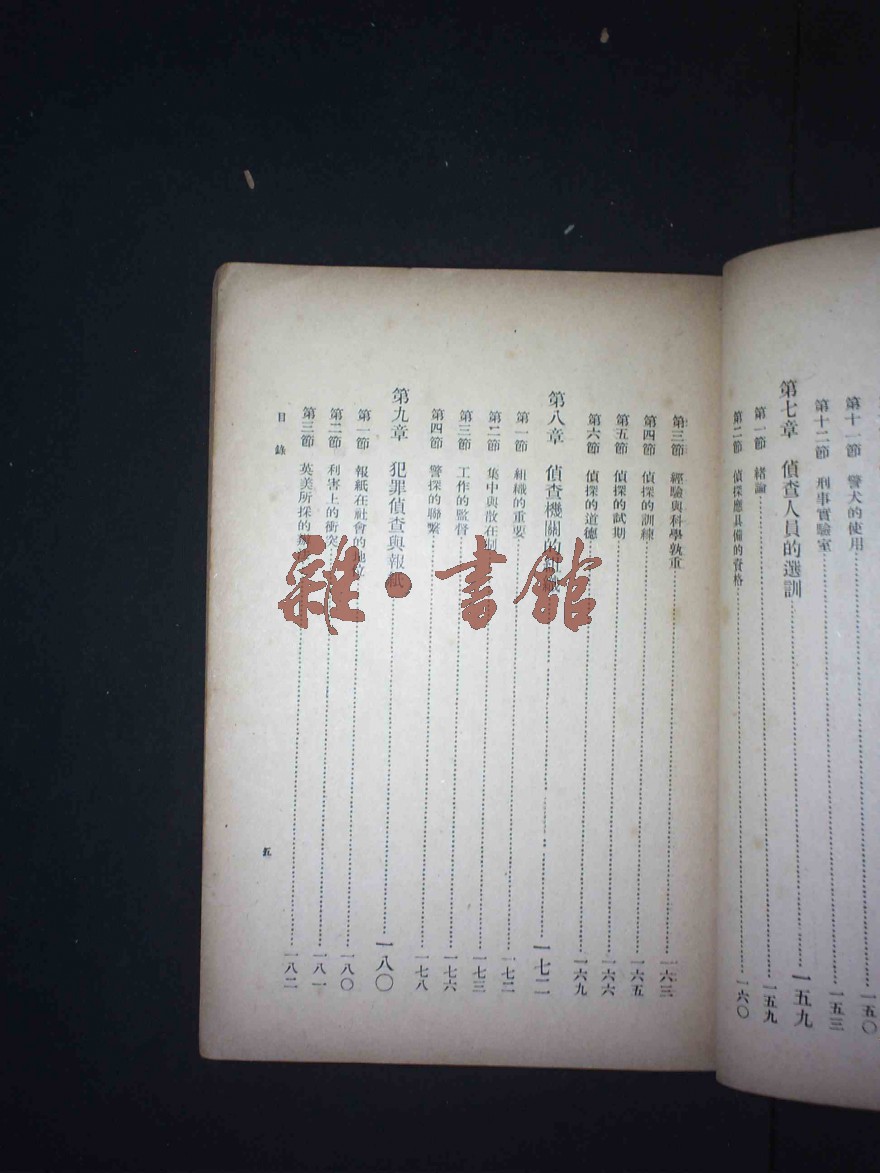 第十一節 警犬的使用 一五〇
第十二節 刑事實驗室 一五三
第七章 偵查人員的選訓 一五九
第一節 緒論 一五九
第二節 偵探應具備的資格 一六〇
第三節 經驗與科學孰重 一六三
第四節 偵探的訓練 一六五
第五節 偵探的試期 一六六
第六節 偵探的道德 一六九
第八章 偵查機關的 一七二
第一節 組織的重要 一七二
第二節 集中與散在 一七三
第三節 工作的監督 一七六
第四節 警探的聯繫 一七八
第九章 犯罪偵查與報紙 一八〇
第一節 報紙在社會的地位 一八〇
第二節 利害上的衝突 一八一
第三節 英美所探的 一八二
目錄
五
雜·書館